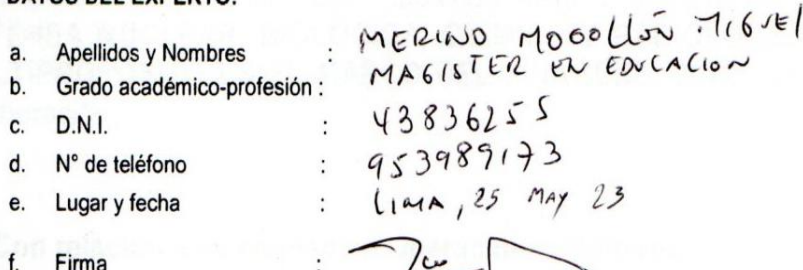 DATOS DEL EXPERTO:
a. Apellidos y Nombres : MERINO MOGOLLÓN MIGUEL
b. Grado académico-profesión : MAGISTER EN EDUCACION
c. D.N.I. : 43836255
d. N° de teléfono : 953989173
e. Lugar y fecha : LIMA, 25 MAY 23
f. Firma :